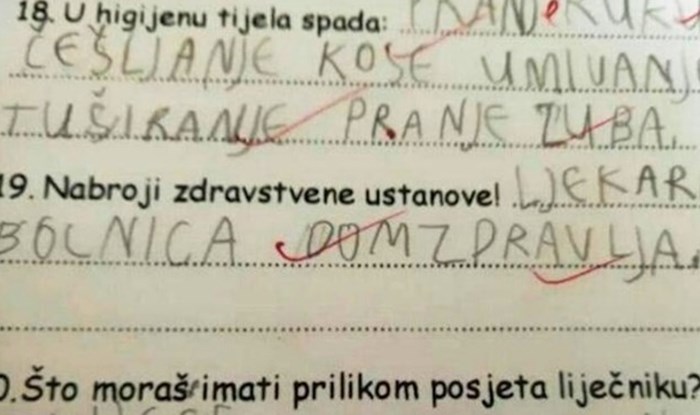 18. U higijenu tijela spada: PRANJE RUKU
ČEŠLJANJE KOSE UMIVANJ
TUŠIRANJE PRANJE ZUBA.
19. Nabroji zdravstvene ustanove! LJEKAR
BOLNICA DOM ZDRAVLJA.
0. Što moraš imati prilikom posjeta liječniku?